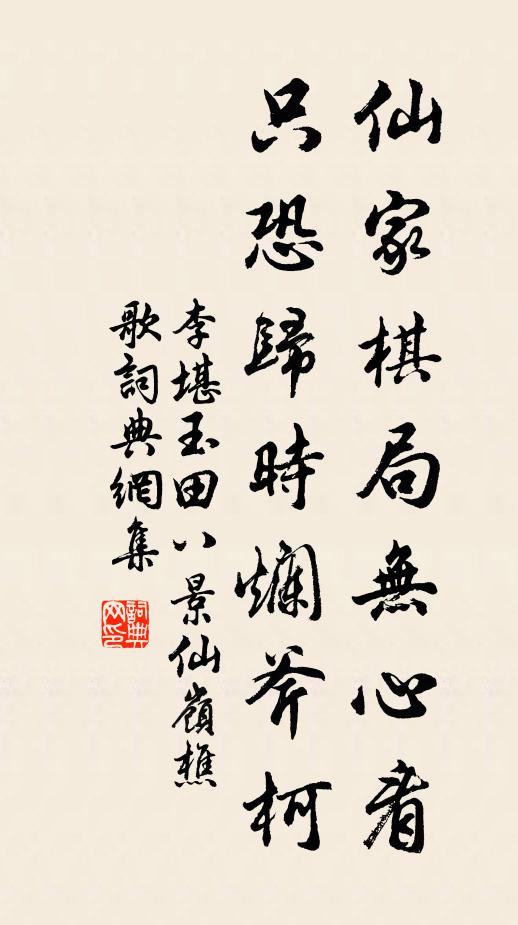 仙家棋局無心看
只恐歸時爛斧柯
李堪玉田八景仙嶺樵
歌詞典網集
詞典網印